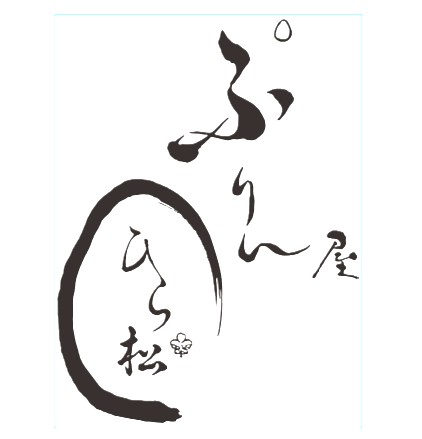 ぷりん屋
ひら松